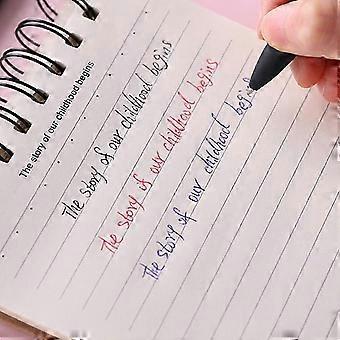 The story of our childhood begins
The story of our childhood begins
The story of our childhood begins
The story of our childhood begins